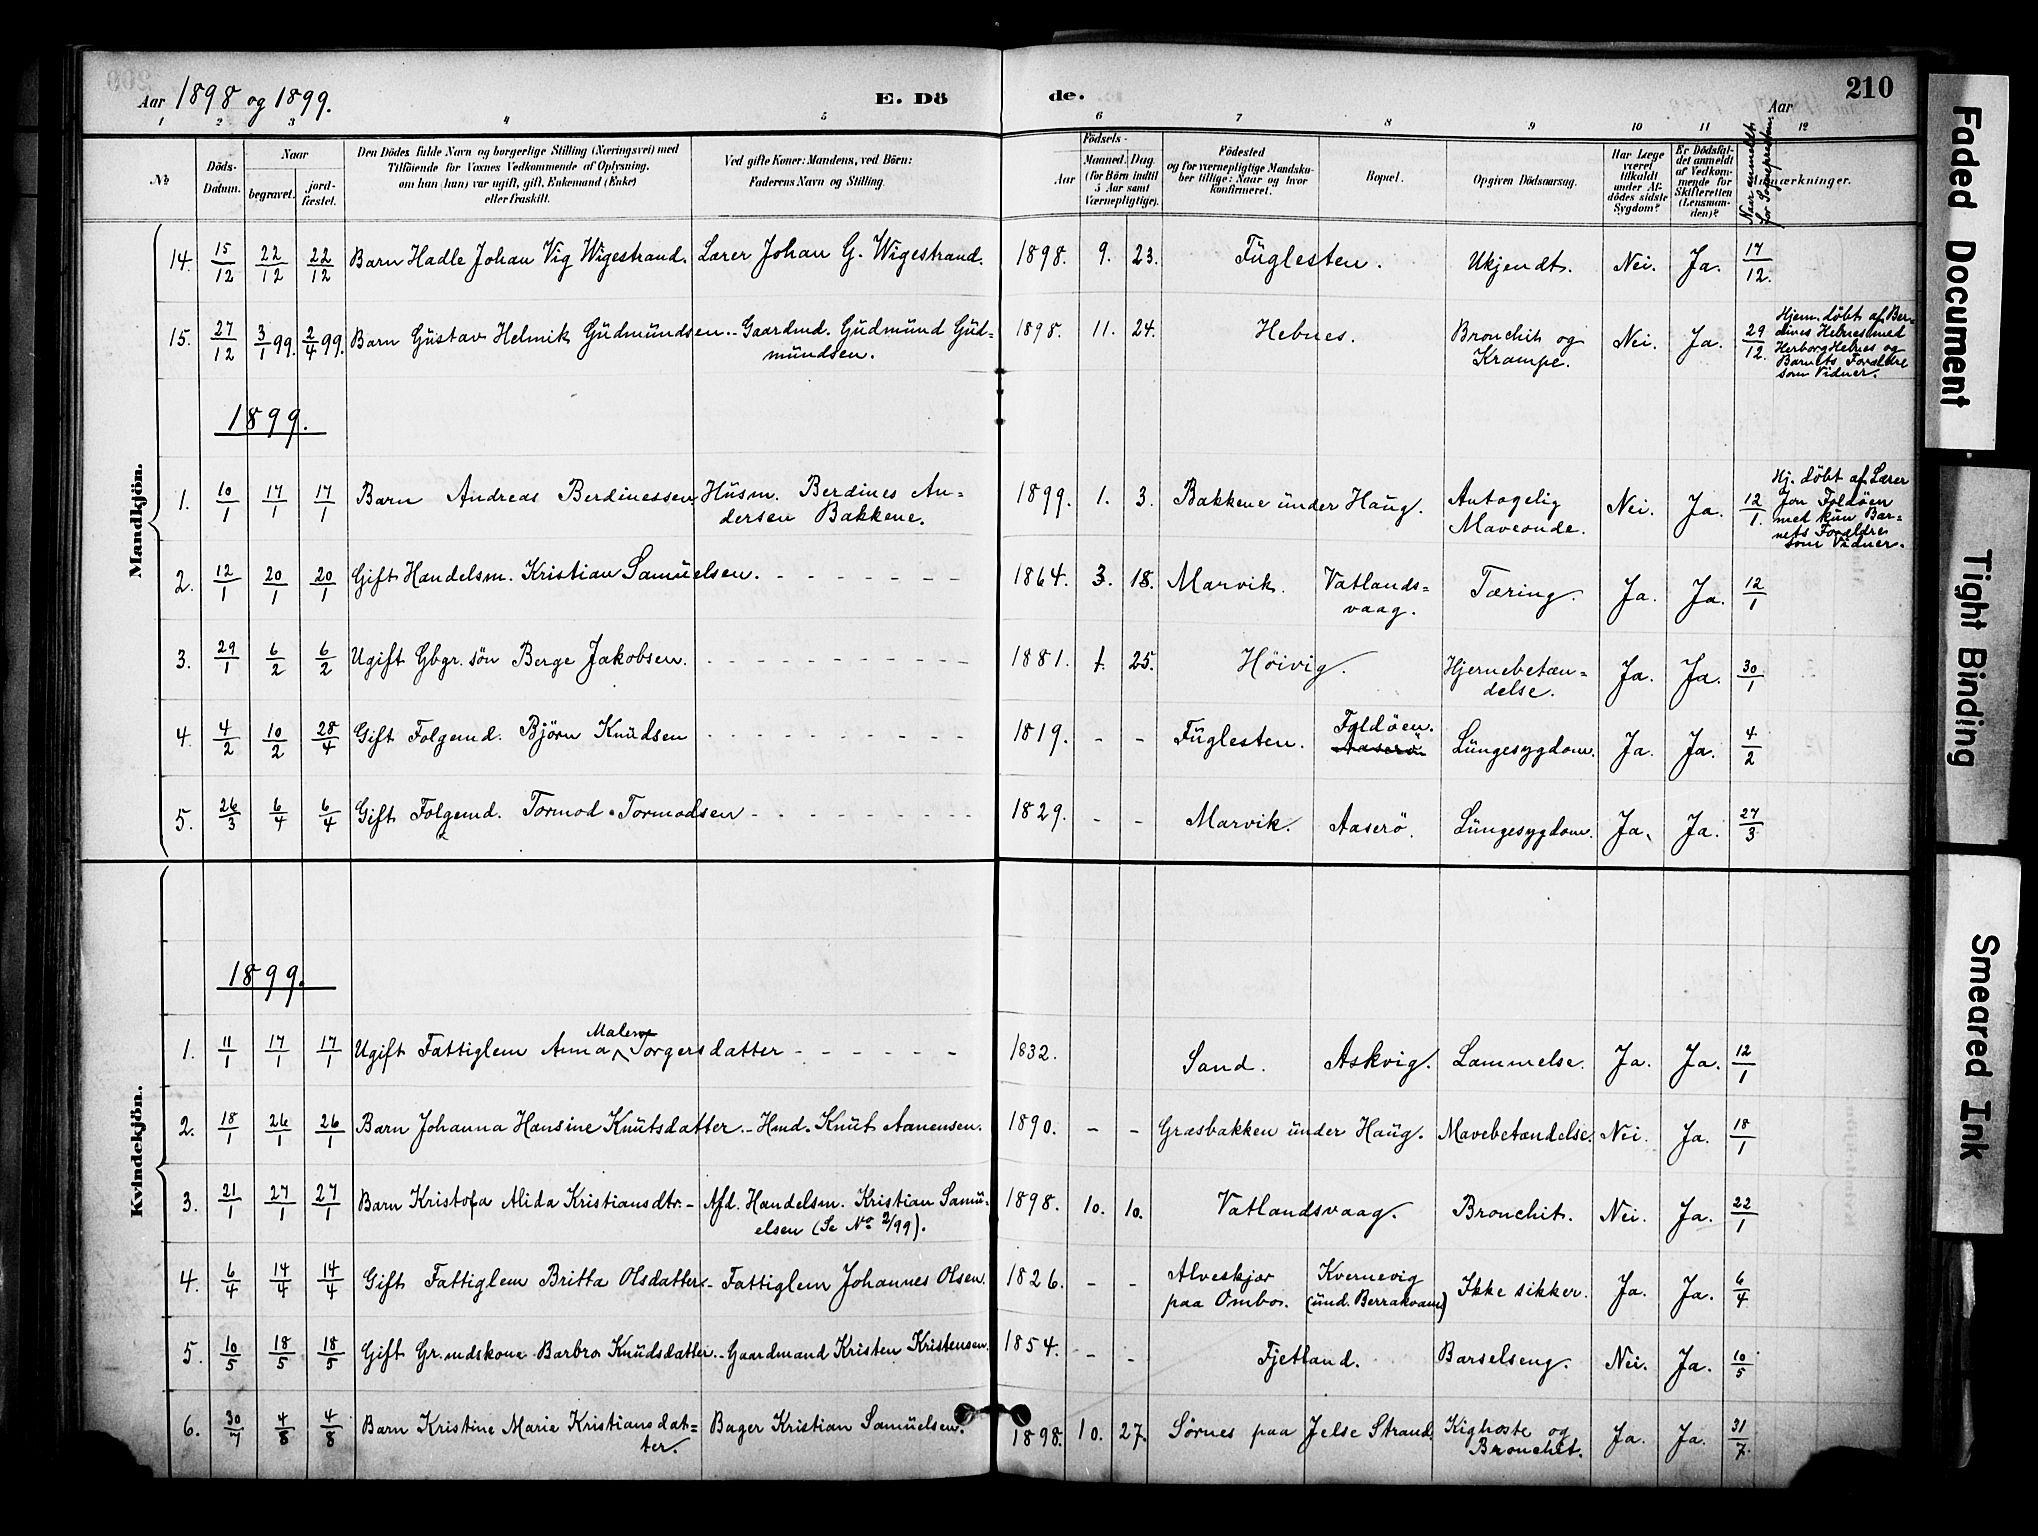 Aar 1898 og 1899. E. Dö de. Aar 210
1 2 3 4 5 6 7 8 9 10 11 12
№ Döds-Datum. Naar begravet. jord-fæstet. Den Dödes fulde Navn og borgerlige Stilling (Næringsvei) med Tilföiende for Voxnes Vedkommende af Oplysning, om han (hun) var ugift, gift, Enkemand (Enke) eller fraskilt. Ved gifte Koner: Mandens, ved Börn: Faderens Navn og Stilling. Födsels- Aar Maaned. Dag. (for Börn indtil 5 Aar samt Værnepligtige). Födested og for værnepligtige Mandskuber tillige: Naar og hvor konfirmeret. Bopæl. Opgiven Dödsaarsag. Har Læge været tilkaldt under Afdödes sidste Sygdom? Er Dödsfaldet anmeldt af Vedkommende for Skifteretten (Lensmanden)? Naar anmeldt for Sognepresten. Anmærkninger.
Mandkjön.
14. 15/12 22/12 22/12 Barn Hadle Johan Vig Wigestrand. Lærer Johan G. Wigestrand. 1898. 9. 23. Fuglesten. Ukjendt. Nei. Ja. 17/12.
15. 27/12 3/1 99. 2/4 99. Barn Gustav Helmik Gudmundsen. - Gaardmd. Gudmund Gud-
mundsen. 1898. 11. 24. Hebnes. Bronchit og
Krampe. Nei. Ja. 29/12. Hjem. döbt af Ber-
dines Hebnes med
Herborg Hebnes og
Barnets Forældre
som Vidner.
1899.
1. 10/1 17/1 17/1 Barn Andreas Berdinessen. Husm. Berdines An-
dersen Bakkene. 1899. 1. 3. Bakkene under Haug. Antagelig
Maveonde. Nei. Ja. 12/1. Hj. döbt af Lærer
Jon Foldöen
med kun Bar-
nets Forældre
som Vidner.
2. 12/1 20/1 20/1 Gift Handelsm. Kristian Samuelsen. 1864. 3. 18. Marvik. Vatlands-
vaag. Tæring. Ja. Ja. 12/1
3. 29/1 6/2 6/2 Ugift Gbgr. sön Berge Jakobsen. 1881. 1. 25. Höivig. Hjernebetæn-
delse. Ja. Ja. 30/1
4. 4/2 10/2 28/4 Gift Folgemd. Björn Knudsen 1819. - - Fuglesten. Foldöen.
Aaserö Lungesygdom. Ja. Ja. 4/2
5. 26/3 6/4 6/4 Gift Folgemd. Tormod Tormodsen 1829. - - Marvik. Aaserö. Lungesygdom. Ja. Ja. 27/3
Kvindekjön.
1899.
1. 11/1 17/1 17/1 Ugift Fattiglem Anna Malene Torgersdatter 1832. Sand. Askvig. Lammelse. Ja. Ja. 12/1
2. 18/1 26/1 26/1 Barn Johanna Hansine Knutsdatter. - Hmd. Knut Aanensen. 1890. - - Græsbakken under Haug. Mavebetændelse. Nei. Ja. 18/1
3. 21/1 27/1 27/1 Barn Kristofa Alida Kristiansdtr. - Afd. Handelsm. Kristian Samu-
elsen (Se No 2/99). 1898. 10. 10. Vatlandsvaag. Bronchit. Nei. Ja. 22/1
4. 6/4 14/4 14/4 Gift Fattiglem Britta Olsdatter - Fattiglem Johannes Olsen. 1826. - - Alveskjær
paa Ombo. Kvernevig
(und. Berrakvam) Ikke sikker. Ja. Ja. 6/4
5. 10/5 18/5 18/5 Gift Gr.mdskone Barbro Knudsdatter. - Gaardmand Kristen Kristensen. 1854. - - Fjetland. Barselseng. Nei. Ja. 10/5
6. 30/7 4/8 4/8 Barn Kristine Marie Kristiansdat-
ter. Bager Kristian Samuelsen. 1898. 10. 27. Sörnes paa Jelse Strand. Kighoste og
Bronchit. Ja. Ja. 31/7.
Faded Document
Tight Binding
Smeared Ink